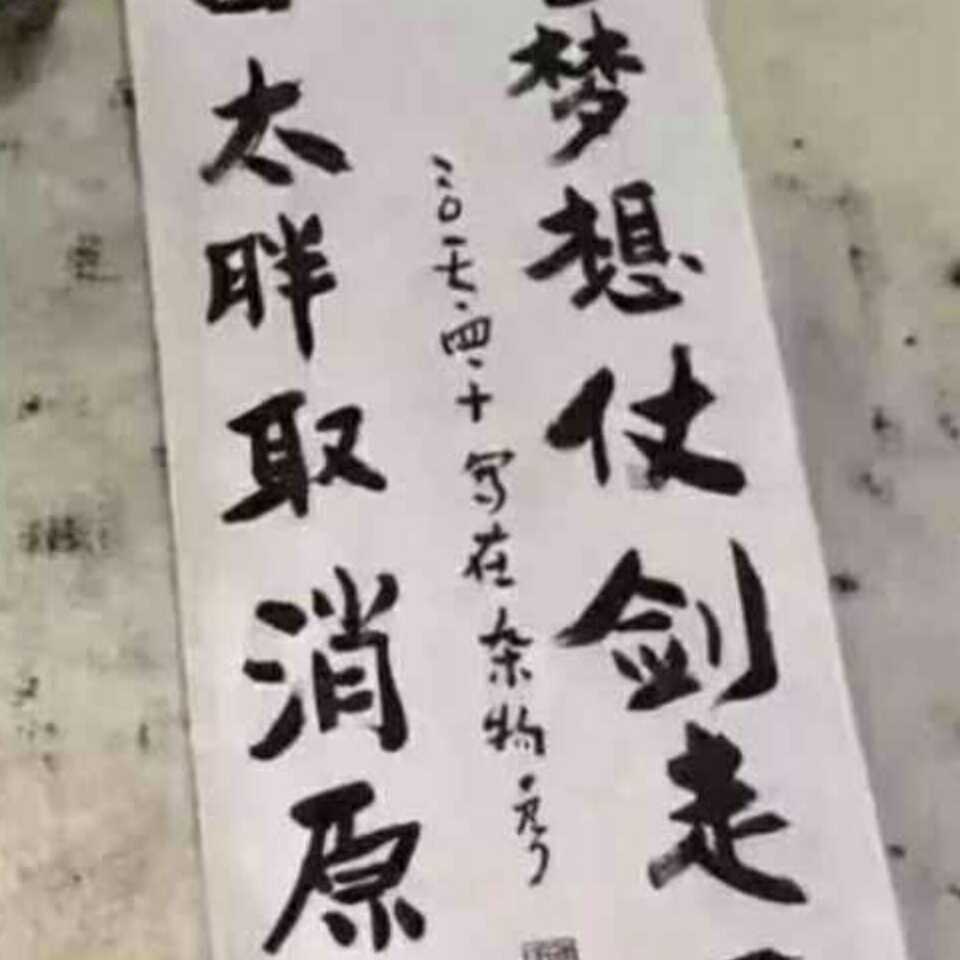 梦想仗剑走
二〇一七·四·十写在杂物
太胖取消原